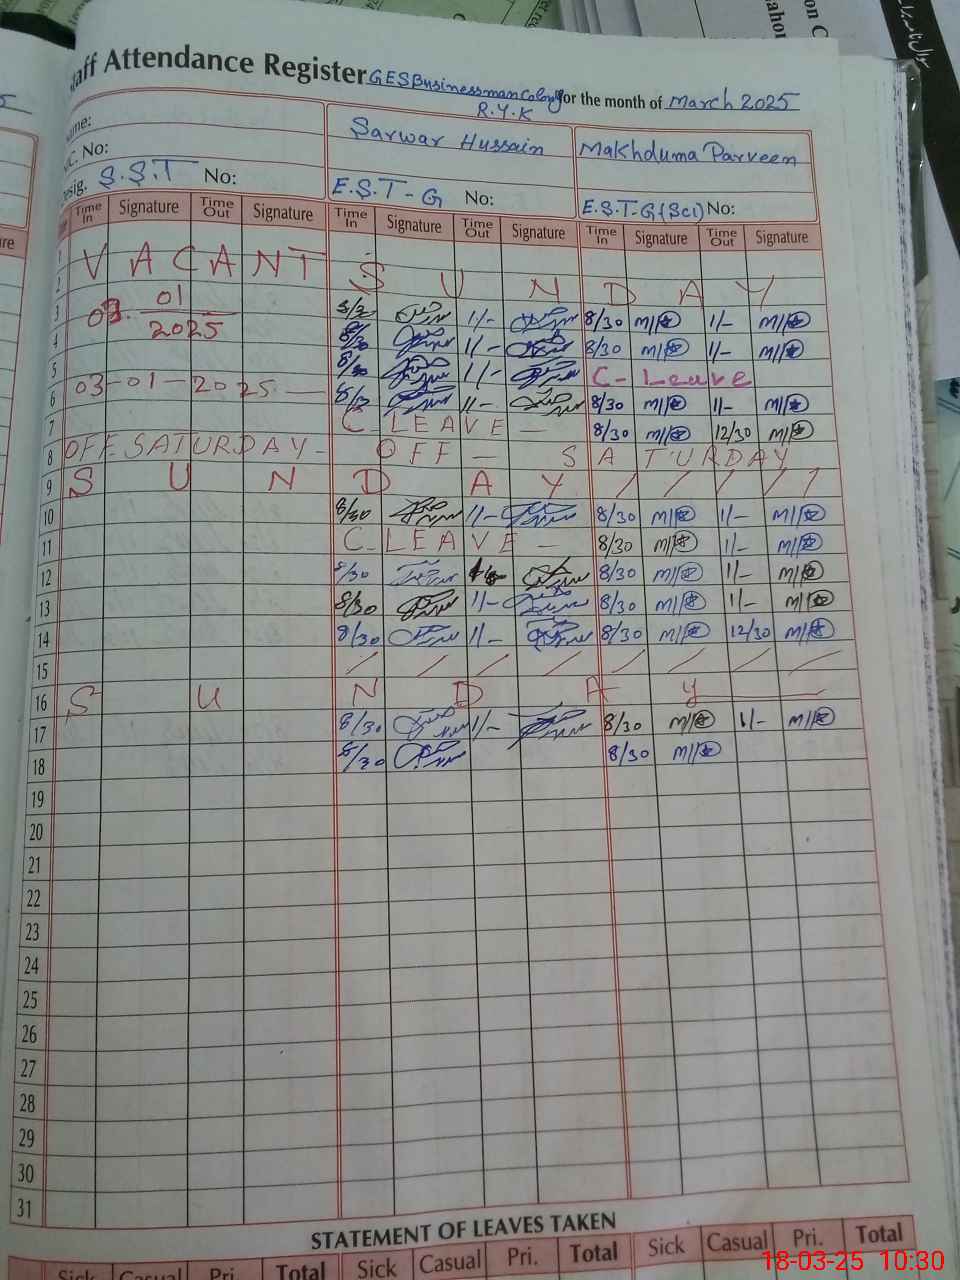 سوال نامہ برائے
aff Attendance Register GES Businessman Colony for the month of March 2025
R.Y.K
ame: Sarwar Hussain Makhduma Parveen
I.C. No:
esig. S.S.T No: E.S.T-G No: E.S.T-G(Sci) No:
Time In Signature Time Out Signature Time In Signature Time Out Signature Time In Signature Time Out Signature
1 VACANT
2 S U N D A Y
3 03.01 8/30 1/- 8/30 1/-
4 2025 8/30 1/- 8/30 1/-
5 8/30 1/- C-Leave
6 03-01-2025 8/30 1/- 8/30 1/-
7 C-LEAVE - 8/30 12/30
8 OFF SATURDAY- OFF - SATURDAY
9 S U N D A Y / / / / /
10 8/30 1/- 8/30 1/-
11 C-LEAVE - 8/30 1/-
12 8/30 8/30 1/-
13 8/30 1/- 8/30 1/-
14 8/30 1/- 8/30 12/30
15 / / / / / / / /
16 S U N D A y
17 8/30 1/- 8/30 1/-
18 8/30 8/30
19
20
21
22
23
24
25
26
27
28
29
30
31
STATEMENT OF LEAVES TAKEN
Sick Casual Pri. Total Sick Casual Pri. Total Sick Casual Pri. Total
18-03-25 10:30